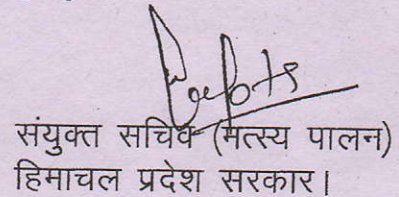 संयुक्त सचिव (मत्स्य पालन)
हिमाचल प्रदेश सरकार।